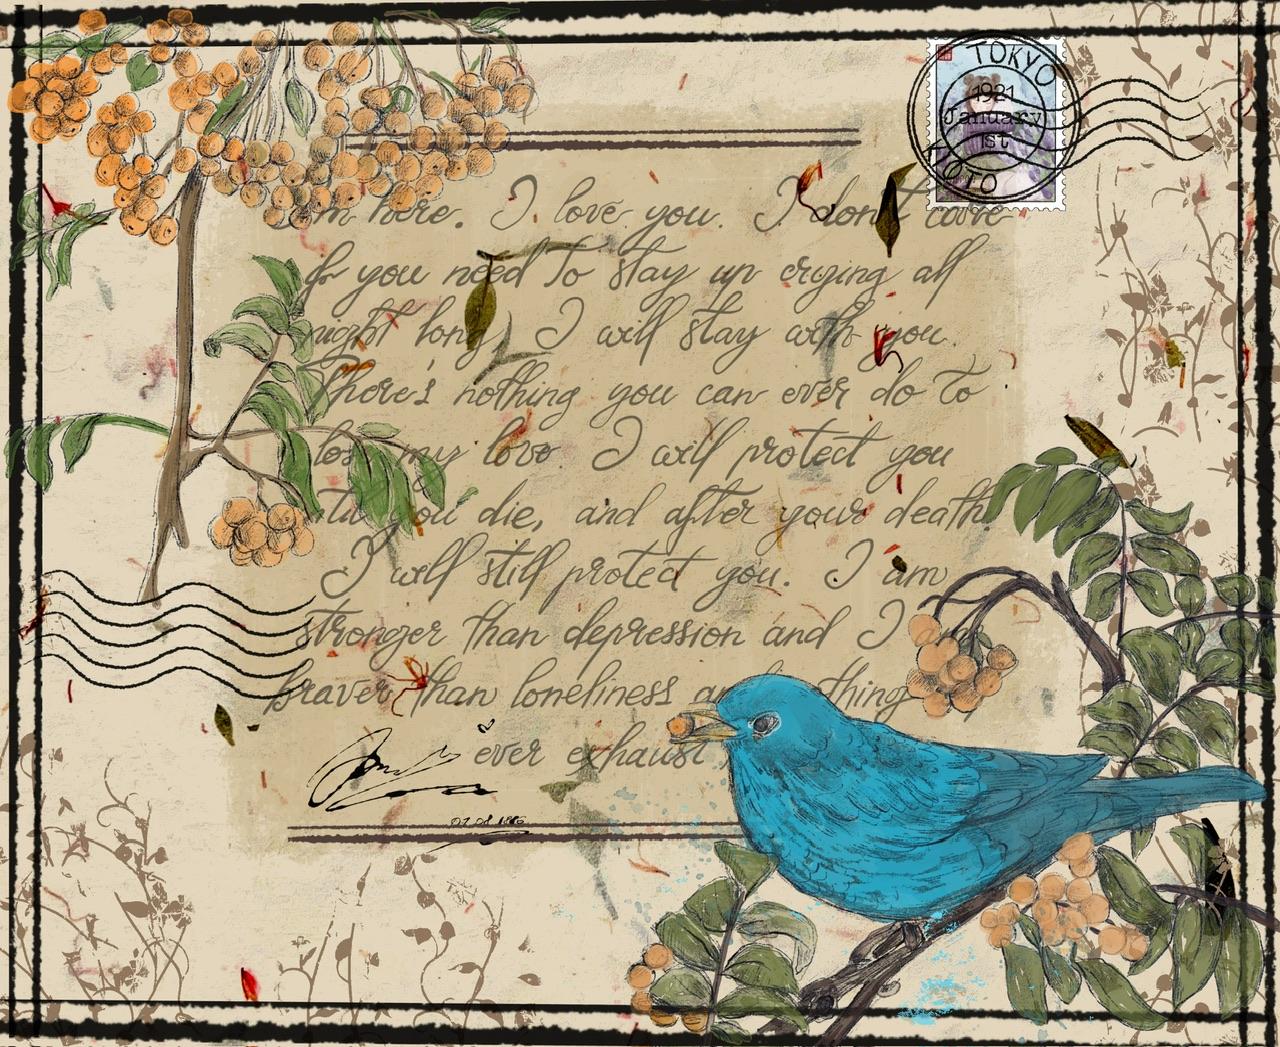 TOKYO
1921
January
1st
TOTO
am here. I love you. I don't care
if you need to stay up crying all
night long, I will stay with you.
There's nothing you can ever do to
lose my love. I will protect you
you die, and after your death
I will still protect you. I am
stronger than depression and I am
braver than loneliness and nothing
ever exhaust